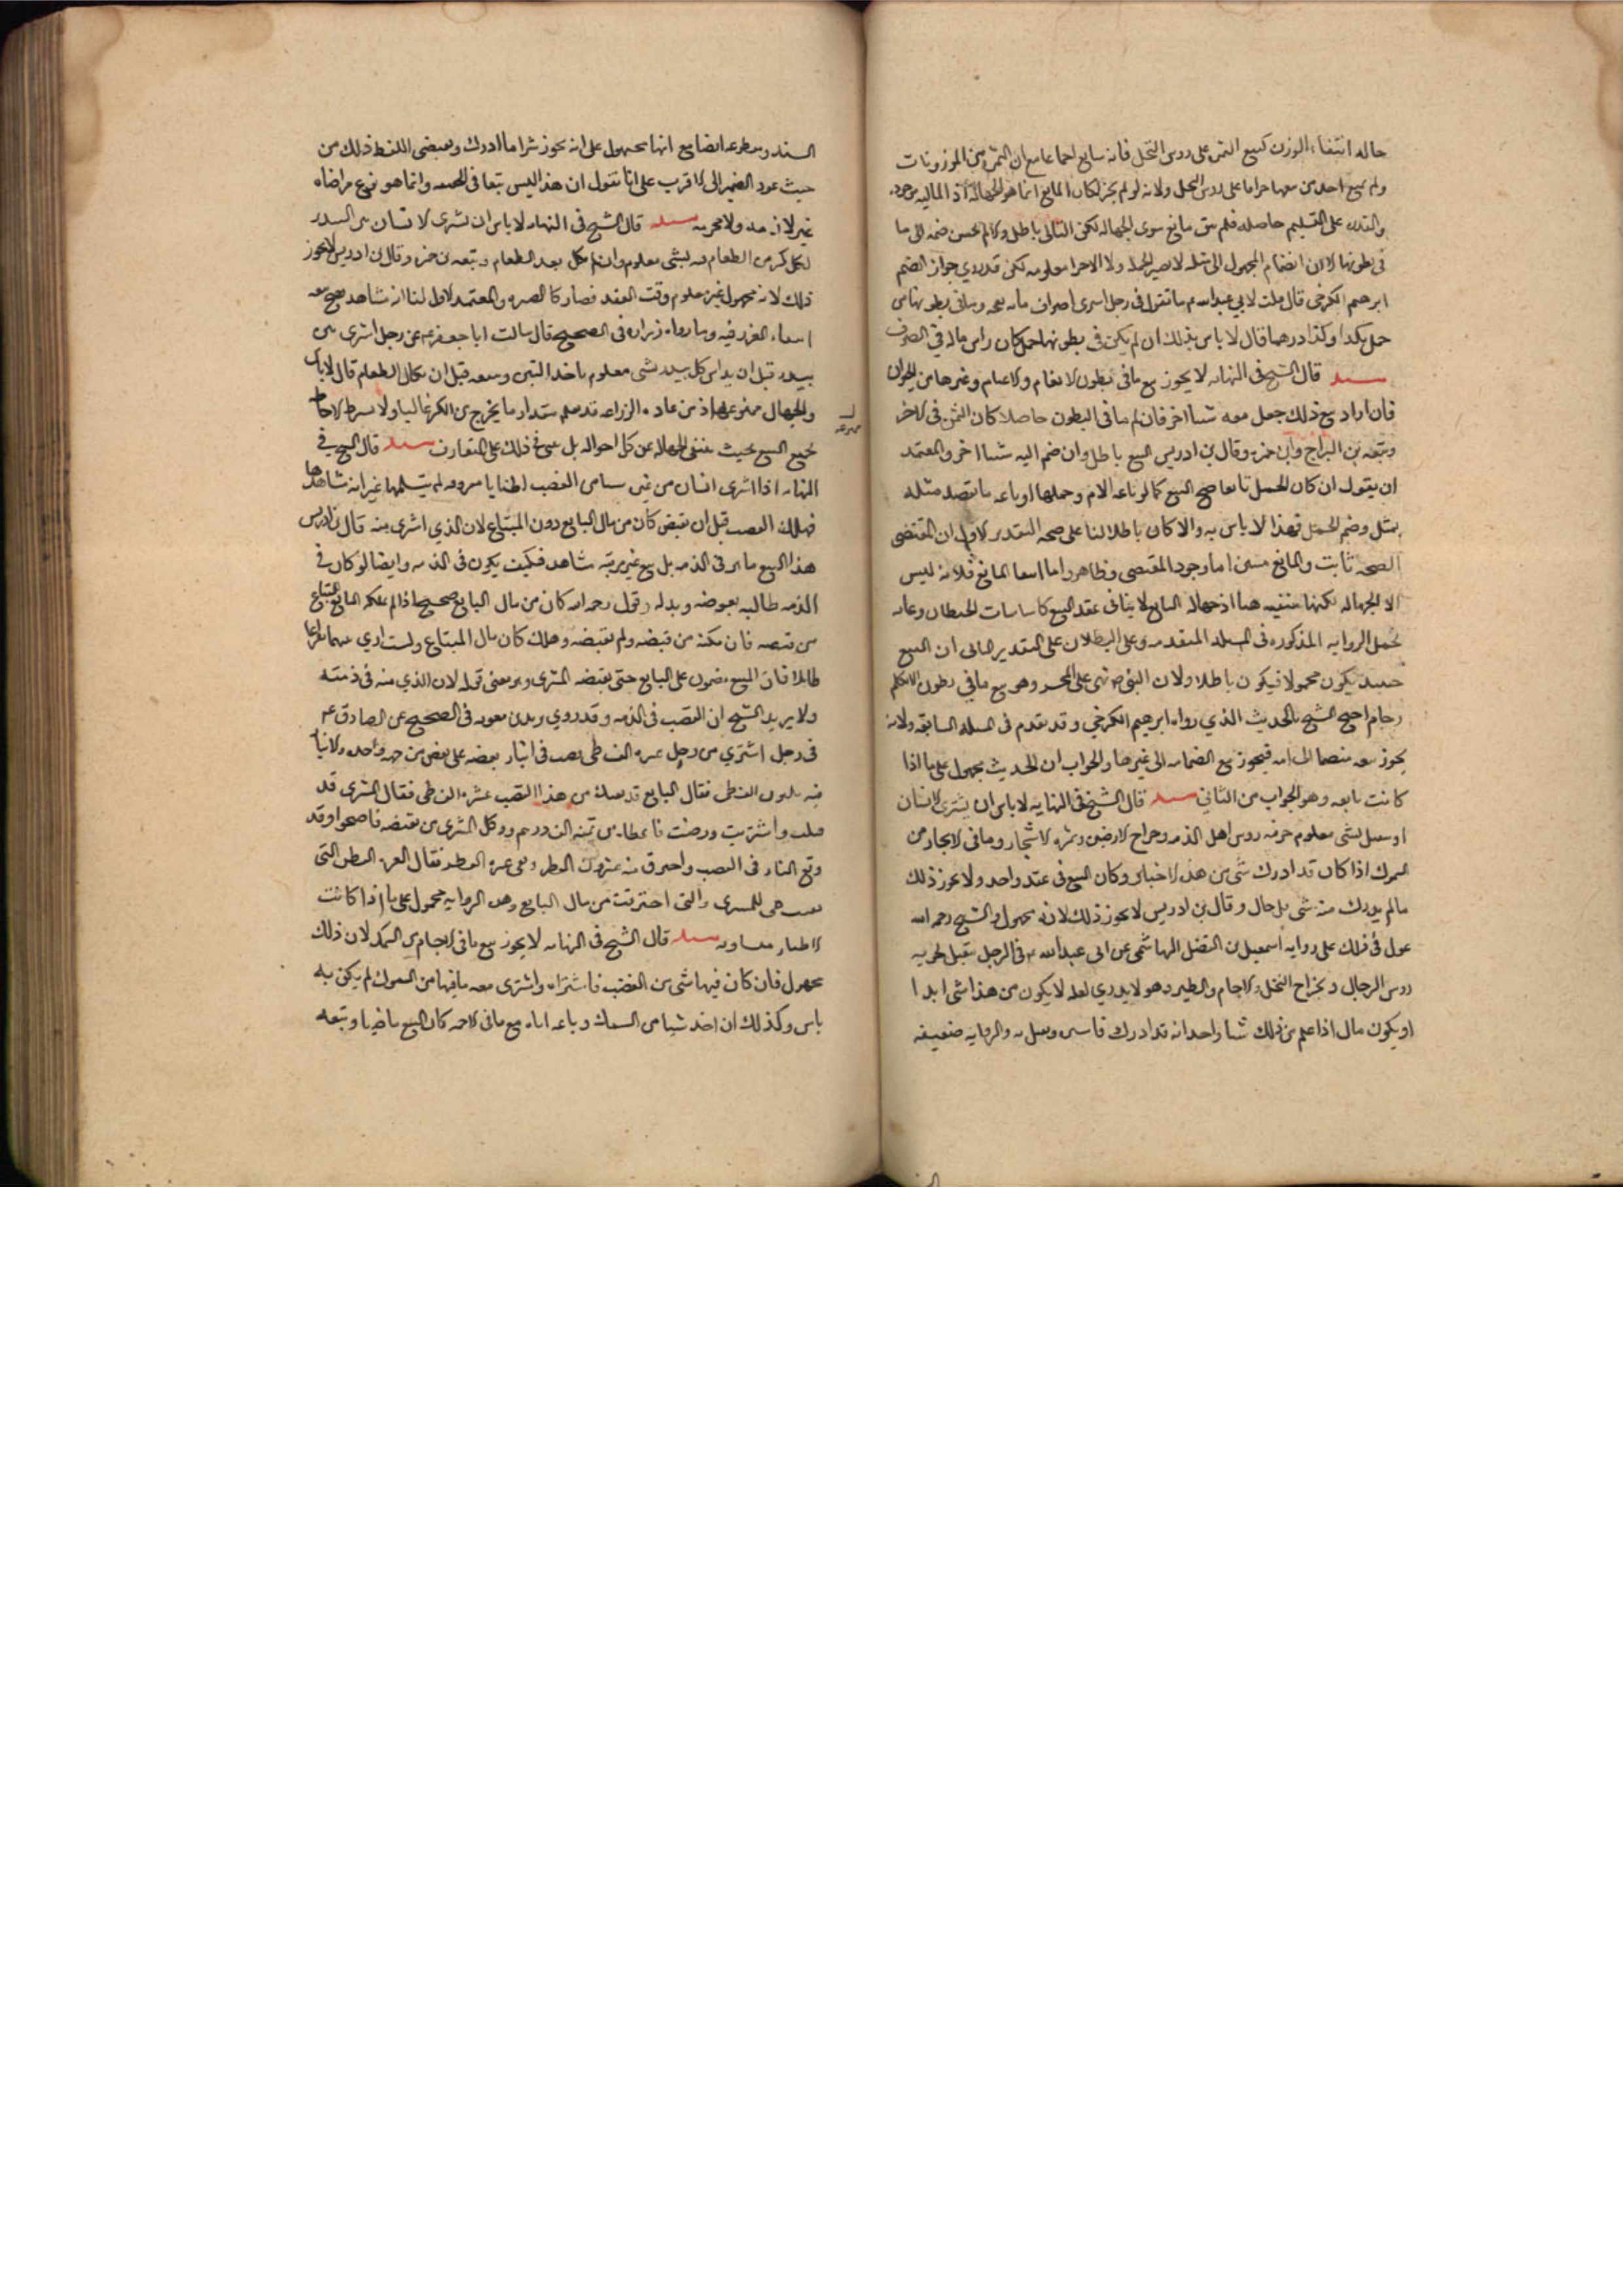 حاله انتفاء الوزن كبيع الثمن على روس النخل فانه سايغ اجماعا مع ان الثمن من الموزونات
ولم يبع احد من معها حراما على روس النخل ولانه لو لم يجز لكان المانع انما هو الجهالة اذ المالية موجوده
والقدره على التسليم حاصله فلم يبق مانع سوى الجهاله لكن التالي باطل والا لم يحسن ضمه الى ما
في بطونها لان انضمام المجهول الى مثله لا يصير الجملة ولا الاجزا معلومه لكن قد روي جواز الضم
ابرهيم الكرخي قال قلت لابي عبد الله ع ما تقول في رجل اشترى اصواف مايه نعجه وما في بطونها من
حمل بكذا وكذا درهما قال لا باس بذلك ان لم يكن في بطونها حمل كان راس ماله في الصوف
مسله قال الشيخ في النهايه لا يجوز بيع ما في بطون الانعام والاغنام وغيرها من الحيوان
فان اراد بيع ذلك جعل معه شيا اخر فان لم ما في البطون حاصلا كان الثمن في الاخر
وتبعه بن البراج وابن حمزه وقال بن ادريس البيع باطل وان ضم اليه شيا اخر والمعتمد
ان يقول ان كان الحمل تابعا صح البيع كما لو باعه الام وحملها او باعه ما يقصد مثله
بمثل وضم الحمل فهذا لا باس به والا كان باطلا لنا على صحه التقدير الاول ان المقتضى
الصحه ثابت والمانع منتف اما وجود المقتضى فظاهر واما انتفا المانع فلانه ليس
الا الجهاله لكنها منتفيه هنا اذ جهاله التابع لا ينافي عقد البيع كاساسات الحيطان وعليه
تحمل الروايه المذكوره في المسله المتقدمه وعلى البطلان على التقدير الثاني ان المبيع
حينيذ يكون مجهولا فيكون باطلا ولان النبي ص نهى عن المجر وهو بيع ما في بطون
الارحام احتج الشيخ بالحديث الذي رواه ابرهيم الكرخي وقد تقدم في المسله السابقه ولانه
يجوز بيعه منضما الى امه فيجوز بيع الضمامه الى غيرها والجواب ان الحديث محمول على ما اذا
كانت تابعه وهو الجواب من الثاني مسله قال الشيخ في النهايه لا باس ان يشتري الانسان
او يتقبل بشى معلوم جزيه روس اهل الذمه وخراج الارضين وثمره الاشجار وما في الاجام من
السمك اذا كان قد ادرك شى من هذه الاجناس وكان البيع في عقد واحد ولا يجوز ذلك
ما لم يدرك منه شى بل حال وقال بن ادريس لا يجوز ذلك لانه مجهول والشيخ رحمه الله
عول في ذلك على روايه اسمعيل بن الفضل الهاشمي عن ابي عبد الله ع في الرجل يتقبل بجزيه
روس الرجال وبخراج النخل والاجام والطير وهو لا يدري لعله لا يكون من هذا شى ابدا
او يكون قال اذا علم من ذلك شيا واحدا انه قد ادرك فاشتره وتقبل به والروايه ضعيفه
السند ومقطوعه ايضا مع انها محموله على انه يجوز شرا ما ادرك ومقتضى اللفظ ذلك من
حيث عود الضمير الى الاقرب على انا نقول ان هذا ليس بيعا في الحقيقه وانما هو نوع مراضاه
غير لازمه ولا محرمه مسله قال الشيخ في النهايه لا باس ان يشترى الانسان من البيدر
لكل كر من الطعام تبنه بشى معلوم وان لم يكل بعد الطعام وتبعه بن حمزه وقال بن ادريس لا يجوز
ذلك لانه مجهول غير معلوم وقت العقد فصار كالصبره والمعتمد الاول لنا انه مشاهد فصح بيعه
انتفاء الغرر فيه وما رواه زراره في الصحيح قال سالت ابا جعفر ع عن رجل اشترى تبن
بيدر قبل ان يداس كل بيدر بشى معلوم ياخذ التبن ويبيعه قبل ان يكال الطعام قال لا باس
والجهال ممنوعه اذ من عاده الزراعه قد يعلم مقدار ما يخرج من الكر غالبا ولا يشرط الاحاطه
بجميع المبيع بحيث ينتفي الجهاله عن كل احواله بل يبنى في ذلك على المتعارف مسله قال الشيخ في
النهايه اذا اشترى انسان من غيره شيا من القصب اطنانا معروفه لم يتسلمها غير انه شاهدها
فهلك القصب قبل ان يقبض كان من مال البايع دون المبتاع لان الذي اشترى منه قال بن ادريس
هذا البيع ما هو في الذمه بل بيع عين مرئيه مشاهده فكيف يكون في الذمه وايضا لو كان في
الذمه طالبه بعوضه وبدله وقوله رحمه الله كان من مال البايع صحيح اذا لم يمكن البايع المبتاع
من قبضه فان مكنه من قبضه ولم يقبضه وهلك كان مال المبتاع ولست ادري
طائلا فان المبيع مضمون على البايع حتى يقبضه المشترى وهو معنى قوله لان الذي منه في ذمته
ولا يريد الشيخ ان القصب في الذمه وقد روى بريد بن معويه في الصحيح عن الصادق ع
في رجل اشتري من رجل عشره الف طن قصب في انبار بعضه على بعض من اجمه واحده والانبار
فيه ثلثون الف طن فقال البايع قد بعتك من هذا القصب عشره الف طن فقال المشترى قد
قبلت واشتريت ورضيت فاعطاه من ثمنه الف درهم ووكل المشترى من يقبضه فاصبحوا وقد
وقع النار في القصب واحترق منه عشرون الف طن وبقى عشره الف طن فقال العشره الف طن التي
بقيت هي للمشترى والتى احترقت من مال البايع وهذه الروايه محمول على ما اذا كانت
الاطنان متساويه مسله قال الشيخ في النهايه لا يجوز بيع ما في الاجام من السمك لان ذلك
مجهول فان كان فيها شى من القصب فاشتراه واشترى معه ما فيها من السموك لم يكن به
باس وكذلك ان اخذ شيا من السمك وباعه اياه مع ما في الاجمه كان البيع ماضيا وتبعه